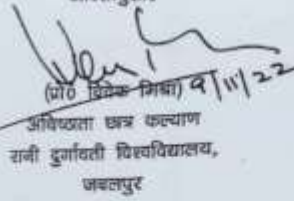 (प्रो० विवेक मिश्रा) 9/11/22
अधिष्ठाता छात्र कल्याण
रानी दुर्गावती विश्वविद्यालय,
जबलपुर